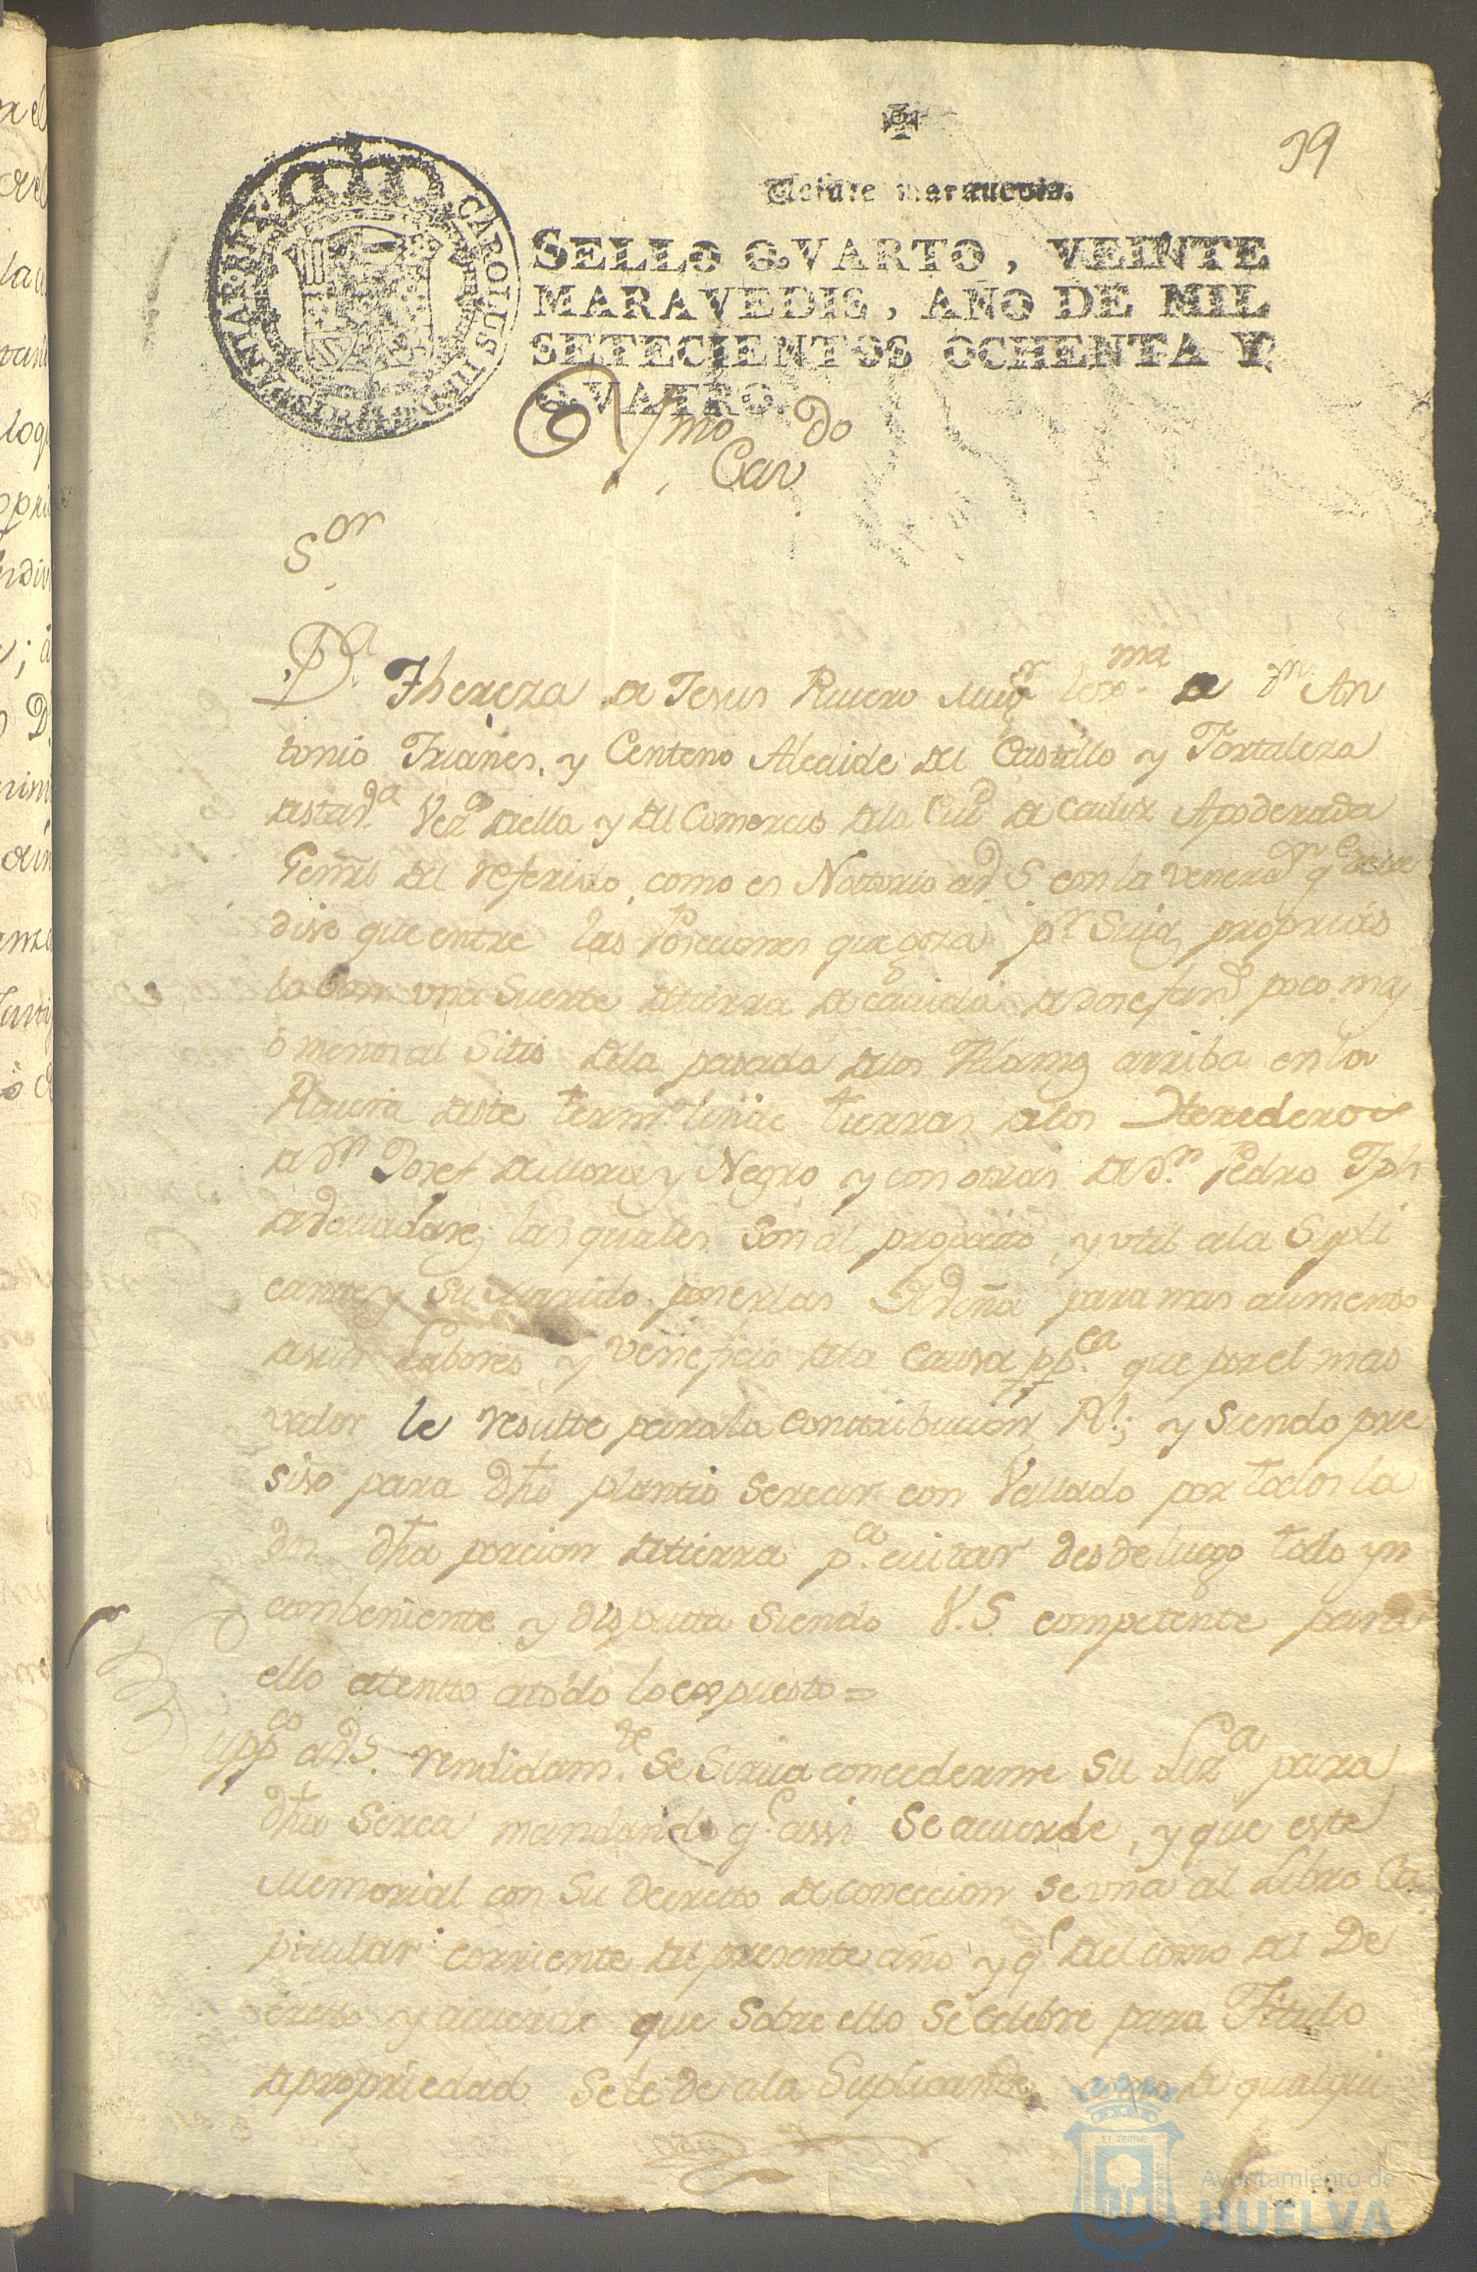 39
Veinte maravedis.
SELLO QVARTO, VEINTE
MARAVEDIS, AÑO DE MIL
SETECIENTOS OCHENTA Y
QVATRO.
CAROLUS III
Ca.vo
S.or
D.a Thereza de Jesus Rivero Mug.r lexma de Dn. An
tonio Trianes, y Centeno Alcaide del Castillo y Fortaleza
destad.a Vez.a della y del Comercio dela Ciud de Cadiz Apoderada
Genrl del referido, como es Notorio ad S. con la venerac.on q.e deve
dise que entre las Poseciones que goza p.r Suias proprias
lo son una Suerte detierra de cavida de dose fan.s poco mas
ô menos al Sitio dela pasada delos Alamos arriba en la
Rivera deste term.o linde tierras delos Herederos
de Dn Josef de Mora y Negro y con otras de Dn. Pedro Jph
las quales son al proposito, y util ala Supli
cante y Su Marido ponerlas de Viña para mas aumento
desus Labores y veneficio dela Causa pp.ca que por el mas
valor le resulte para la contribucion Rl.; y siendo pre
siso para dho plantio Sercar con Vallado por todos la
dos dha porcion detierra p.a evitar desde luego todo yn
conbeniente y disputa siendo V.S. competente para
ello atento atodo lo expuesto =
Supp.co a V.S. rendidam.te Se Sirva concederme Su Liz.a para
dha Serca mandando q.e assi Se acuerde, y que este
Memorial con Su decreto de concecion se una al Libro Ca
pitular corriente del presente año y q.e del como del De
creto y acuerdo que sobre ello se celebre para Titulo
depropriedad Se le de ala Suplicante de qualqui
ET TERRÆ
Ayuntamiento de
HUELVA